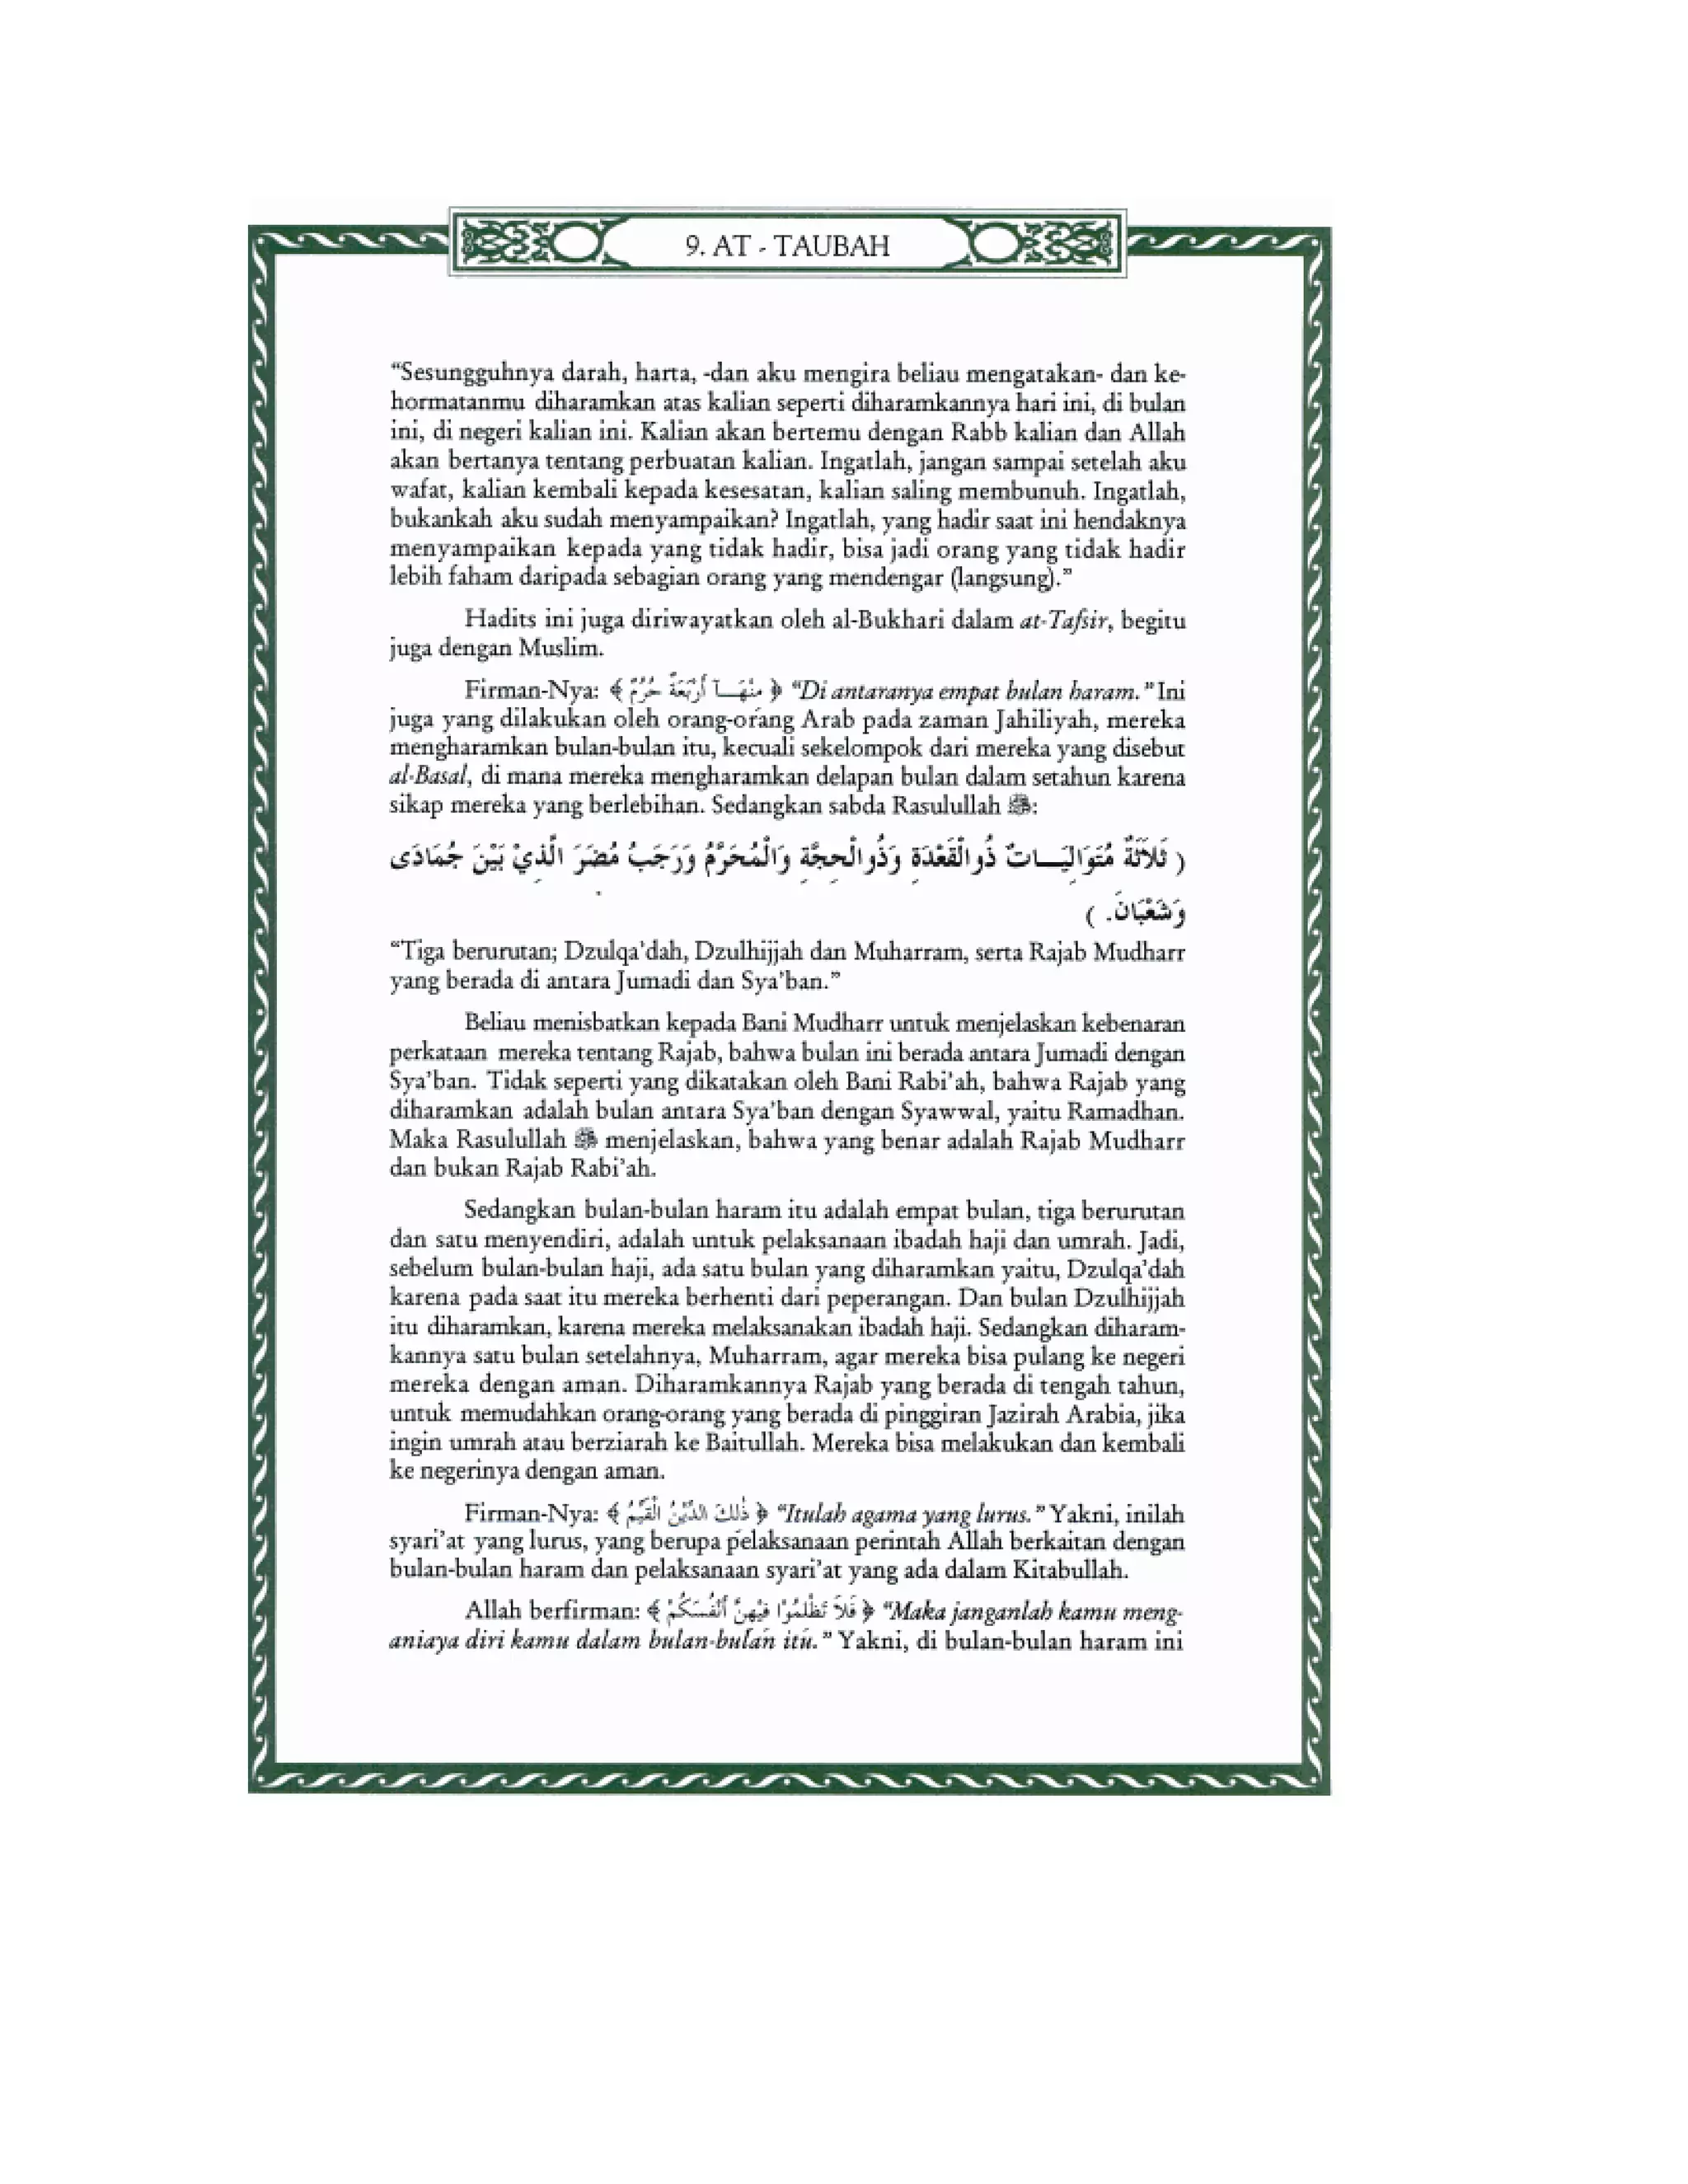 9. AT - TAUBAH
“Sesungguhnya darah, harta, -dan aku mengira beliau mengatakan- dan ke-
hormatanmu diharamkan atas kalian seperti diharamkannya hari ini, di bulan
ini, di negeri kalian ini. Kalian akan bertemu dengan Rabb kalian dan Allah
akan bertanya tentang perbuatan kalian. Ingatlah, jangan sampai setelah aku
wafat, kalian kembali kepada kesesatan, kalian saling membunuh. Ingatlah,
bukankah aku sudah menyampaikan? Ingatlah, yang hadir saat ini hendaknya
menyampaikan kepada yang tidak hadir, bisa jadi orang yang tidak hadir
lebih faham daripada sebagian orang yang mendengar (langsung).”
Hadits ini juga diriwayatkan oleh al-Bukhari dalam at-Tafsir, begitu
juga dengan Muslim.
Firman-Nya: ﴿ مِنْهَـآ أَرْبَعَةٌ حُرُمٌ ﴾ “Di antaranya empat bulan haram.” Ini
juga yang dilakukan oleh orang-orang Arab pada zaman Jahiliyah, mereka
mengharamkan bulan-bulan itu, kecuali sekelompok dari mereka yang disebut
al-Basal, di mana mereka mengharamkan delapan bulan dalam setahun karena
sikap mereka yang berlebihan. Sedangkan sabda Rasulullah ﷺ:
( ثَلاَثَةٌ مُتَوَالِيَـاتٌ ذُوالْقَعْدَةِ وَذُوالْحِجَّةِ وَالْمُحَرَّمُ وَرَجَبُ مُضَرَ الَّذِيْ بَيْنَ جُمَادَى
وَشَعْبَانَ. )
“Tiga berurutan; Dzulqa’dah, Dzulhijjah dan Muharram, serta Rajab Mudharr
yang berada di antara Jumadi dan Sya’ban.”
Beliau menisbatkan kepada Bani Mudharr untuk menjelaskan kebenaran
perkataan mereka tentang Rajab, bahwa bulan ini berada antara Jumadi dengan
Sya’ban. Tidak seperti yang dikatakan oleh Bani Rabi’ah, bahwa Rajab yang
diharamkan adalah bulan antara Sya’ban dengan Syawwal, yaitu Ramadhan.
Maka Rasulullah ﷺ menjelaskan, bahwa yang benar adalah Rajab Mudharr
dan bukan Rajab Rabi’ah.
Sedangkan bulan-bulan haram itu adalah empat bulan, tiga berurutan
dan satu menyendiri, adalah untuk pelaksanaan ibadah haji dan umrah. Jadi,
sebelum bulan-bulan haji, ada satu bulan yang diharamkan yaitu, Dzulqa’dah
karena pada saat itu mereka berhenti dari peperangan. Dan bulan Dzulhijjah
itu diharamkan, karena mereka melaksanakan ibadah haji. Sedangkan diharam-
kannya satu bulan setelahnya, Muharram, agar mereka bisa pulang ke negeri
mereka dengan aman. Diharamkannya Rajab yang berada di tengah tahun,
untuk memudahkan orang-orang yang berada di pinggiran Jazirah Arabia, jika
ingin umrah atau berziarah ke Baitullah. Mereka bisa melakukan dan kembali
ke negerinya dengan aman.
Firman-Nya: ﴿ ذَلِكَ الدِّيْنُ الْقَيِّمُ ﴾ “Itulah agama yang lurus.” Yakni, inilah
syari’at yang lurus, yang berupa pelaksanaan perintah Allah berkaitan dengan
bulan-bulan haram dan pelaksanaan syari’at yang ada dalam Kitabullah.
Allah berfirman: ﴿ فَلاَ تَظْلِمُوْا فِيْهِنَّ أَنْفُسَكُمْ ﴾ “Maka janganlah kamu meng-
aniaya diri kamu dalam bulan-bulan itu.” Yakni, di bulan-bulan haram ini